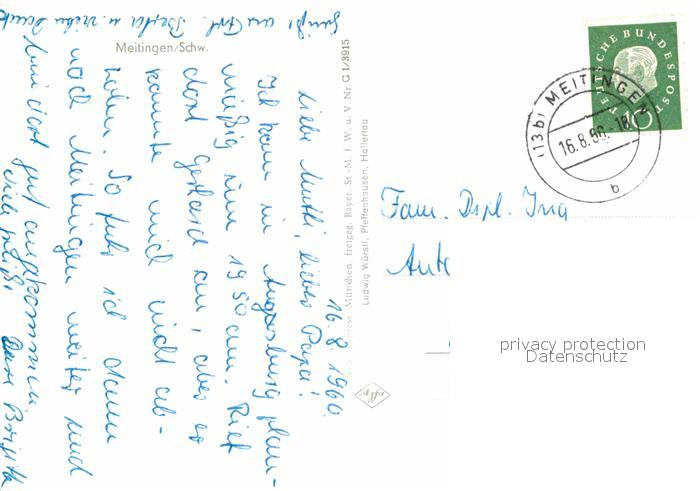 Meitingen/Schw.
16.8.1960.
Liebe Mutti, lieber Papa!
Ich kam in Augsburg plan-
mäßig um 19 50 an. Rief
dort gerland an, aber es
konnte mich nicht ab-
holen. So fuhr ich dann
nach Meitingen weiter und
bin dort gut angekommen.
Viele Grüße Eure Brigitte
Grüße an Frl. Berta u. vielen Dank
München, freigeg. Bayer. St. M. f. W. u. V. Nr. G 1/3915
Ludwig Würstl, Pfeffenhausen, Hallertau
DEUTSCHE BUNDESPOST
(13b) MEITINGEN
16.8.60.-18
b
Fam. Dipl. Ing
privacy protection
Datenschutz